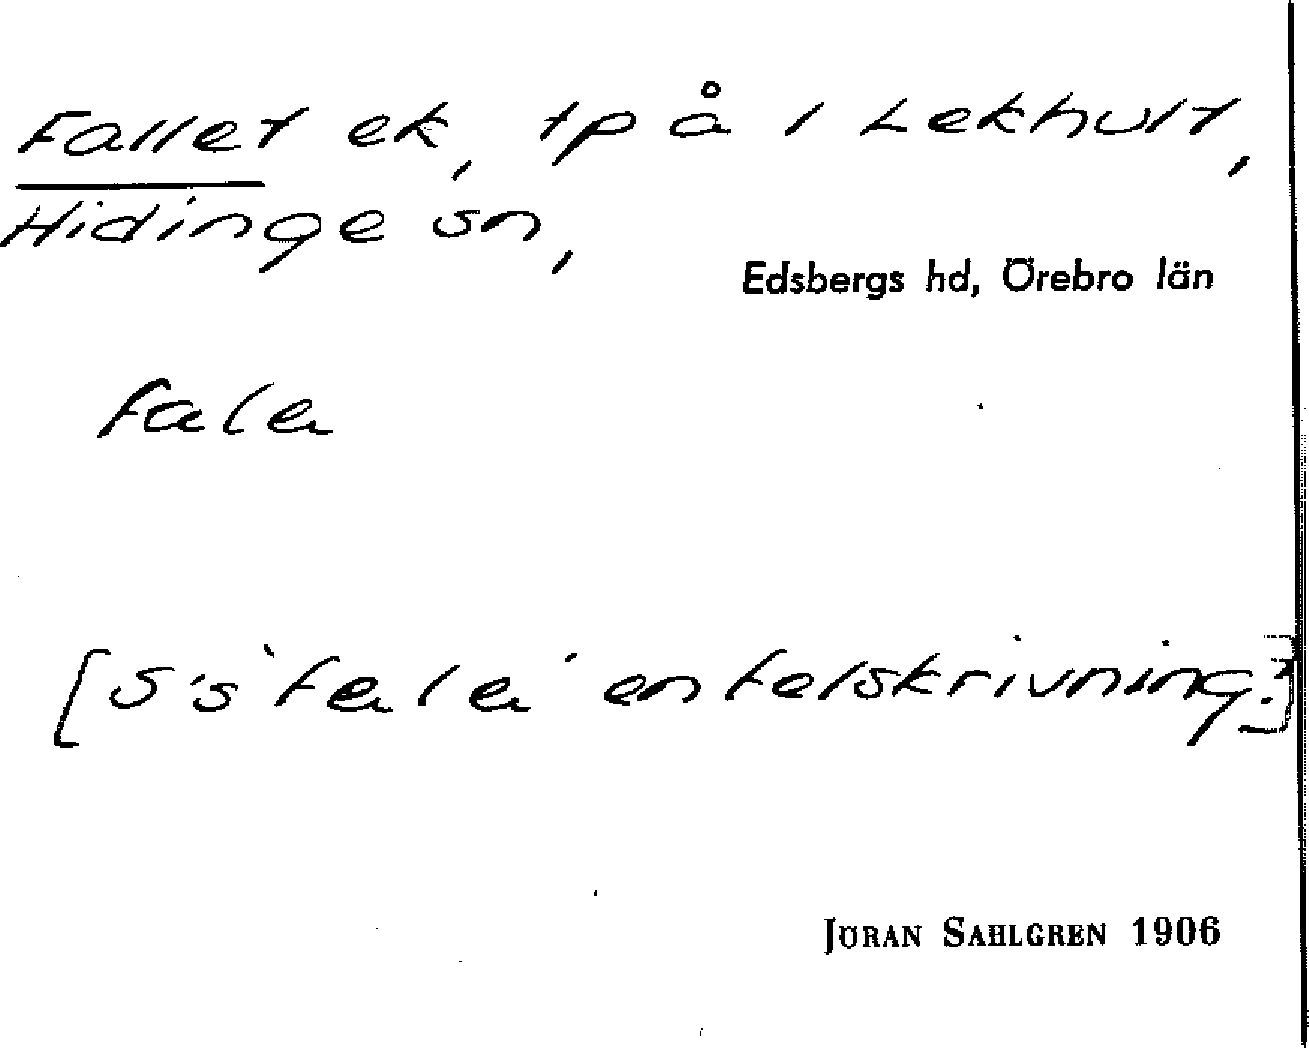 Fallet ek, tp å 1 Lekhult,
Hidinge sn,
Edsbergs hd, Örebro län
fala
[S:s `fala´ en felskrivning?]
JÖRAN SAHLGREN 1906